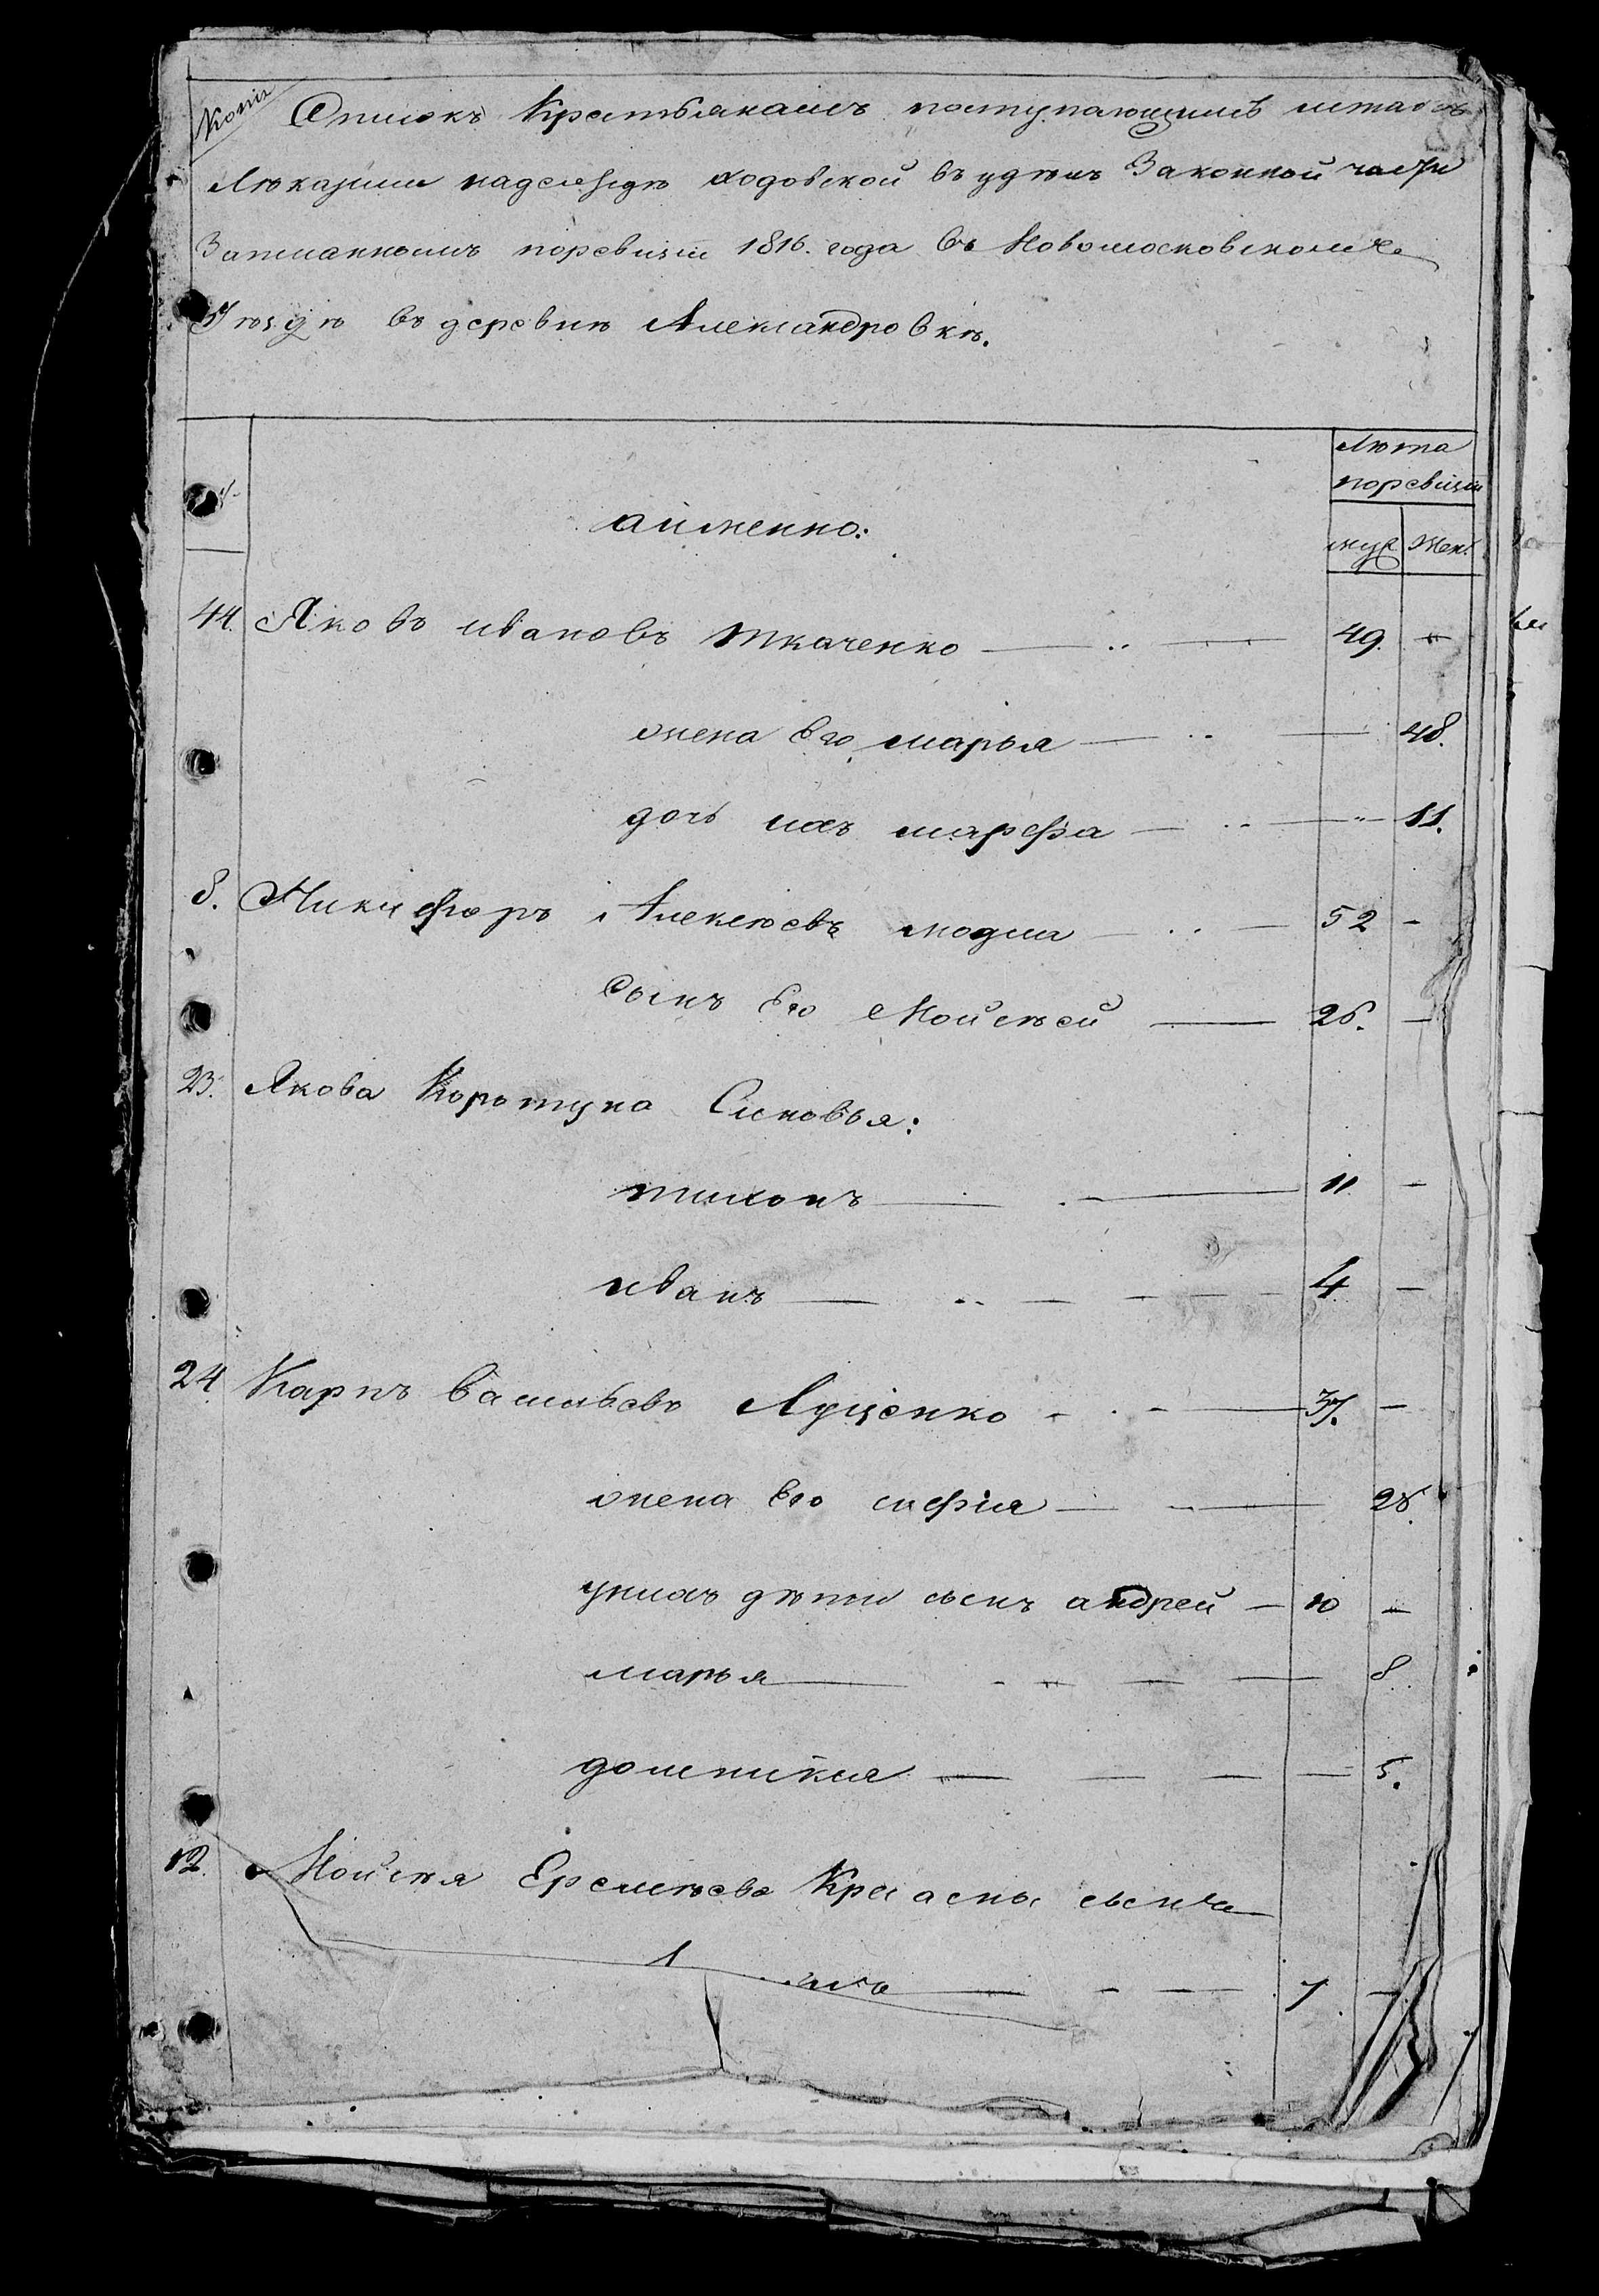 Копія
Списокъ Крестьянамъ поступающимъ штабъ
Лѣкарши надсъ ходовской въ удѣлъ Законной части
Записаннымъ поревизіи 1816. года въ Новомосковскомъ
Уѣздѣ въ деревнѣ Александровкѣ.
Лѣта
поревизіи
аименно:
муж Жен.
44. Яковъ ивановъ ткаченко 49.
жена Его марья 48.
дочь ихъ марфа 11.
8. Никифоръ Алексѣевъ 52 -
Сынъ Его Мойсѣй 26. -
23. Якова Коротуна Синовья:
тихонъ 11 -
иванъ 4 -
24 Карпъ васильевъ Луценко 37. -
жена Его софія 28.
унихъ дѣти сынъ андрей - 10 -
марья 8
домникия 5.
12. Мойсѣя Еремѣева сынъ
7 -